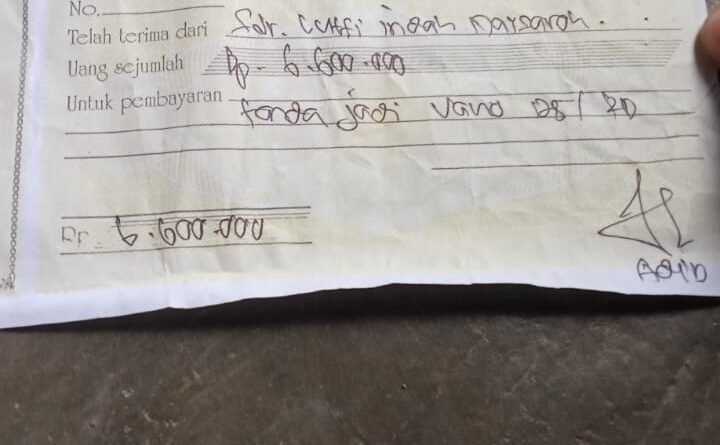 No.
Telah terima dari Sdr. Lutfi indah marsaroh.
Uang sejumlah Rp - 6.600.000
Untuk pembayaran tanda jadi vario 25/20
Rp 6.600.000